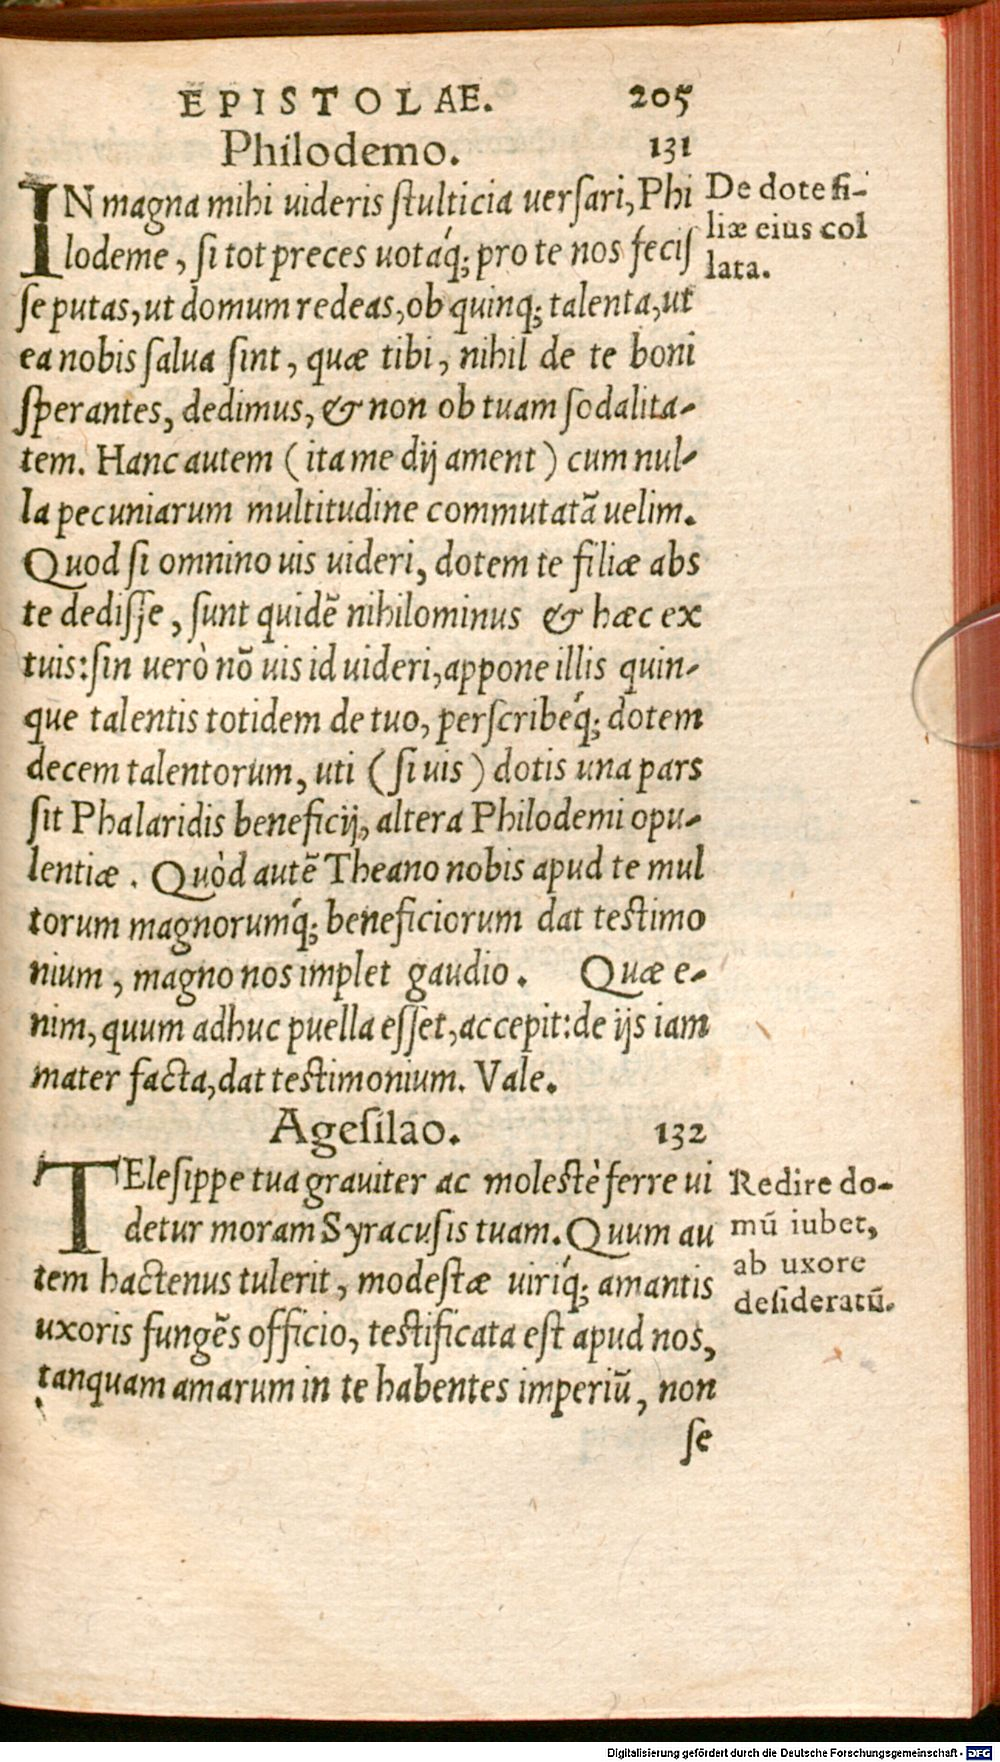 EPISTOLAE. 205
Philodemo. 131
IN magna mihi uideris ſtulticia uerſari, Phi
lodeme, ſi tot preces uotáq; pro te nos feciſ
ſe putas, ut domum redeas, ob quinq; talenta, ut
ea nobis ſalua ſint, quæ tibi, nihil de te boni
ſperantes, dedimus, & non ob tuam ſodalita-
tem. Hanc autem (ita me dij ament) cum nul-
la pecuniarum multitudine commutatã uelim.
Quod ſi omnino uis uideri, dotem te filiæ abs
te dediſſe, ſunt quidẽ nihilominus & hæc ex
tuis: ſin uerò nõ uis id uideri, appone illis quin-
que talentis totidem de tuo, perſcribéq; dotem
decem talentorum, uti (ſi uis) dotis una pars
ſit Phalaridis beneficij, altera Philodemi opu-
lentiæ. Quòd autẽ Theano nobis apud te mul
torum magnorumq́; beneficiorum dat teſtimo
nium, magno nos implet gaudio. Quæ e-
nim, quum adhuc puella eſſet, accepit: de ijs iam
mater facta, dat teſtimonium. Vale.
De dote fi-
liæ eius col
lata.
Ageſilao. 132
TEleſippe tua grauiter ac moleſtè ferre ui
detur moram Syracuſis tuam. Quum au
tem hactenus tulerit, modeſtæ uiriq́; amantis
uxoris fungẽs officio, teſtificata eſt apud nos,
tanquam amarum in te habentes imperiũ, non
ſe
Redire do-
mũ iubet,
ab uxore
deſideratũ.
Digitalisierung gefördert durch die Deutsche Forschungsgemeinschaft - DFG